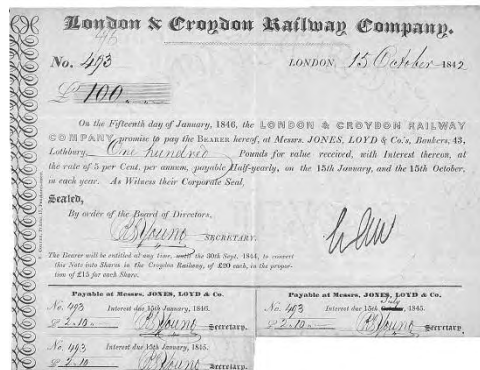 London & Croydon Railway Company.
No. 493 LONDON, 15 October 1842
£ 100
On the Fifteenth day of January, 1846, the LONDON & CROYDON RAILWAY
COMPANY promise to pay the BEARER hereof, at Messrs. JONES, LOYD & Co.'s, Bankers, 43,
Lothbury, One hundred Pounds for value received, with Interest thereon, at
the rate of 5 per Cent. per annum, payable Half-yearly, on the 15th January, and the 15th October,
in each year. As Witness their Corporate Seal,
Sealed,
By order of the Board of Directors,
Young SECRETARY.
The Bearer will be entitled at any time, until the 30th Sept. 1844, to convert
this Note into Shares in the Croydon Railway, of £20 each, in the propor-
tion of £15 for each Share.
Payable at Messrs. JONES, LOYD & Co.
No. 493 Interest due 15th January, 1846.
£ 2.10 Young Secretary.
Payable at Messrs. JONES, LOYD & Co.
No. 493 Interest due 15th July, 1845.
£ 2.10 Young Secretary.
No. 493 Interest due 15th January, 1845.
£ 2.10 Young Secretary.